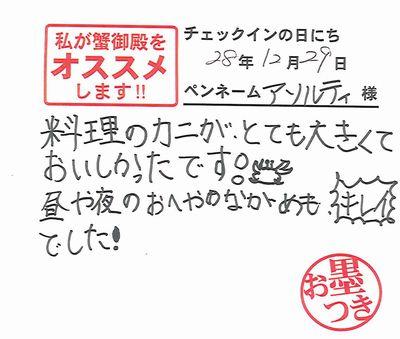 私が蟹御殿を
オススメ
します!!
チェックインの日にち
28年12月29日
ペンネームアソルティ様
料理のカニが、とても大きくて
おいしかったです!
昼や夜のおへやのながめも、キレイ
でした!
お墨つき